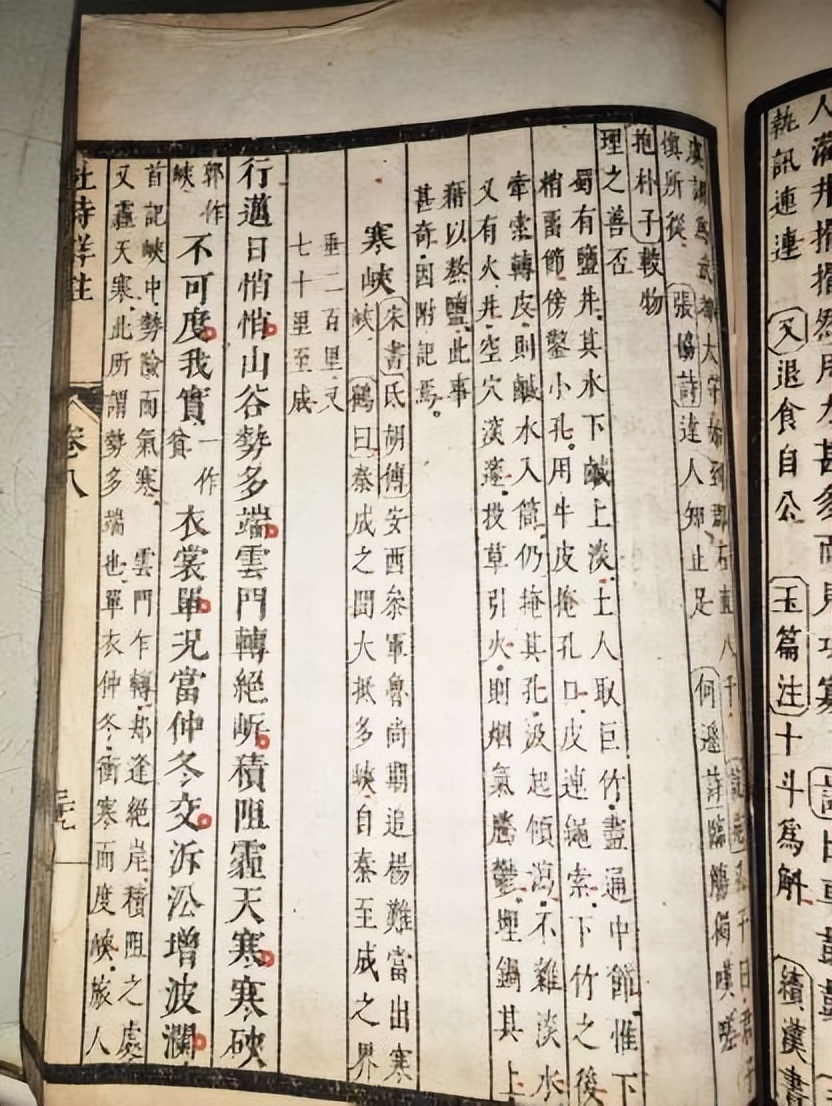 執訊連連 又退食自公 玉篇注十斗爲斛 續漢書
慎所從 張協詩達人知止足 何遜詩臨觴獨嘆嗟
抱朴子較物
理之善否
蜀有鹽井其水下鹹上淡土人取巨竹盡通中節惟下
梢畱節傍鑿小孔用牛皮掩孔口皮連繩索下竹之後
牽索轉皮則鹹水入筒仍掩其孔汲起傾瀉不雜淡水
又有火井空穴淡蓬投草引火則烟氣騰鬱埋鍋其上
藉以熬鹽此事
甚奇因附記焉
寒峽 宋書氐胡傳安西叅軍魯尚期追楊難當出寒
峽 鶴曰秦成之間大抵多峽自秦至成之界
垂二百里又
七十里至成
行邁日悄悄山谷勢多端雲門轉絕岓積阻霾天寒寒硤
郭作峽不可度我實一作貧衣裳單況當仲冬交泝沿增波瀾
首記峽中勢險而氣寒 雲門乍轉却逢絕岸積阻之處
又霾天寒此所謂勢多端也單衣仲冬衝寒而度峽旅人
杜詩詳註 卷八